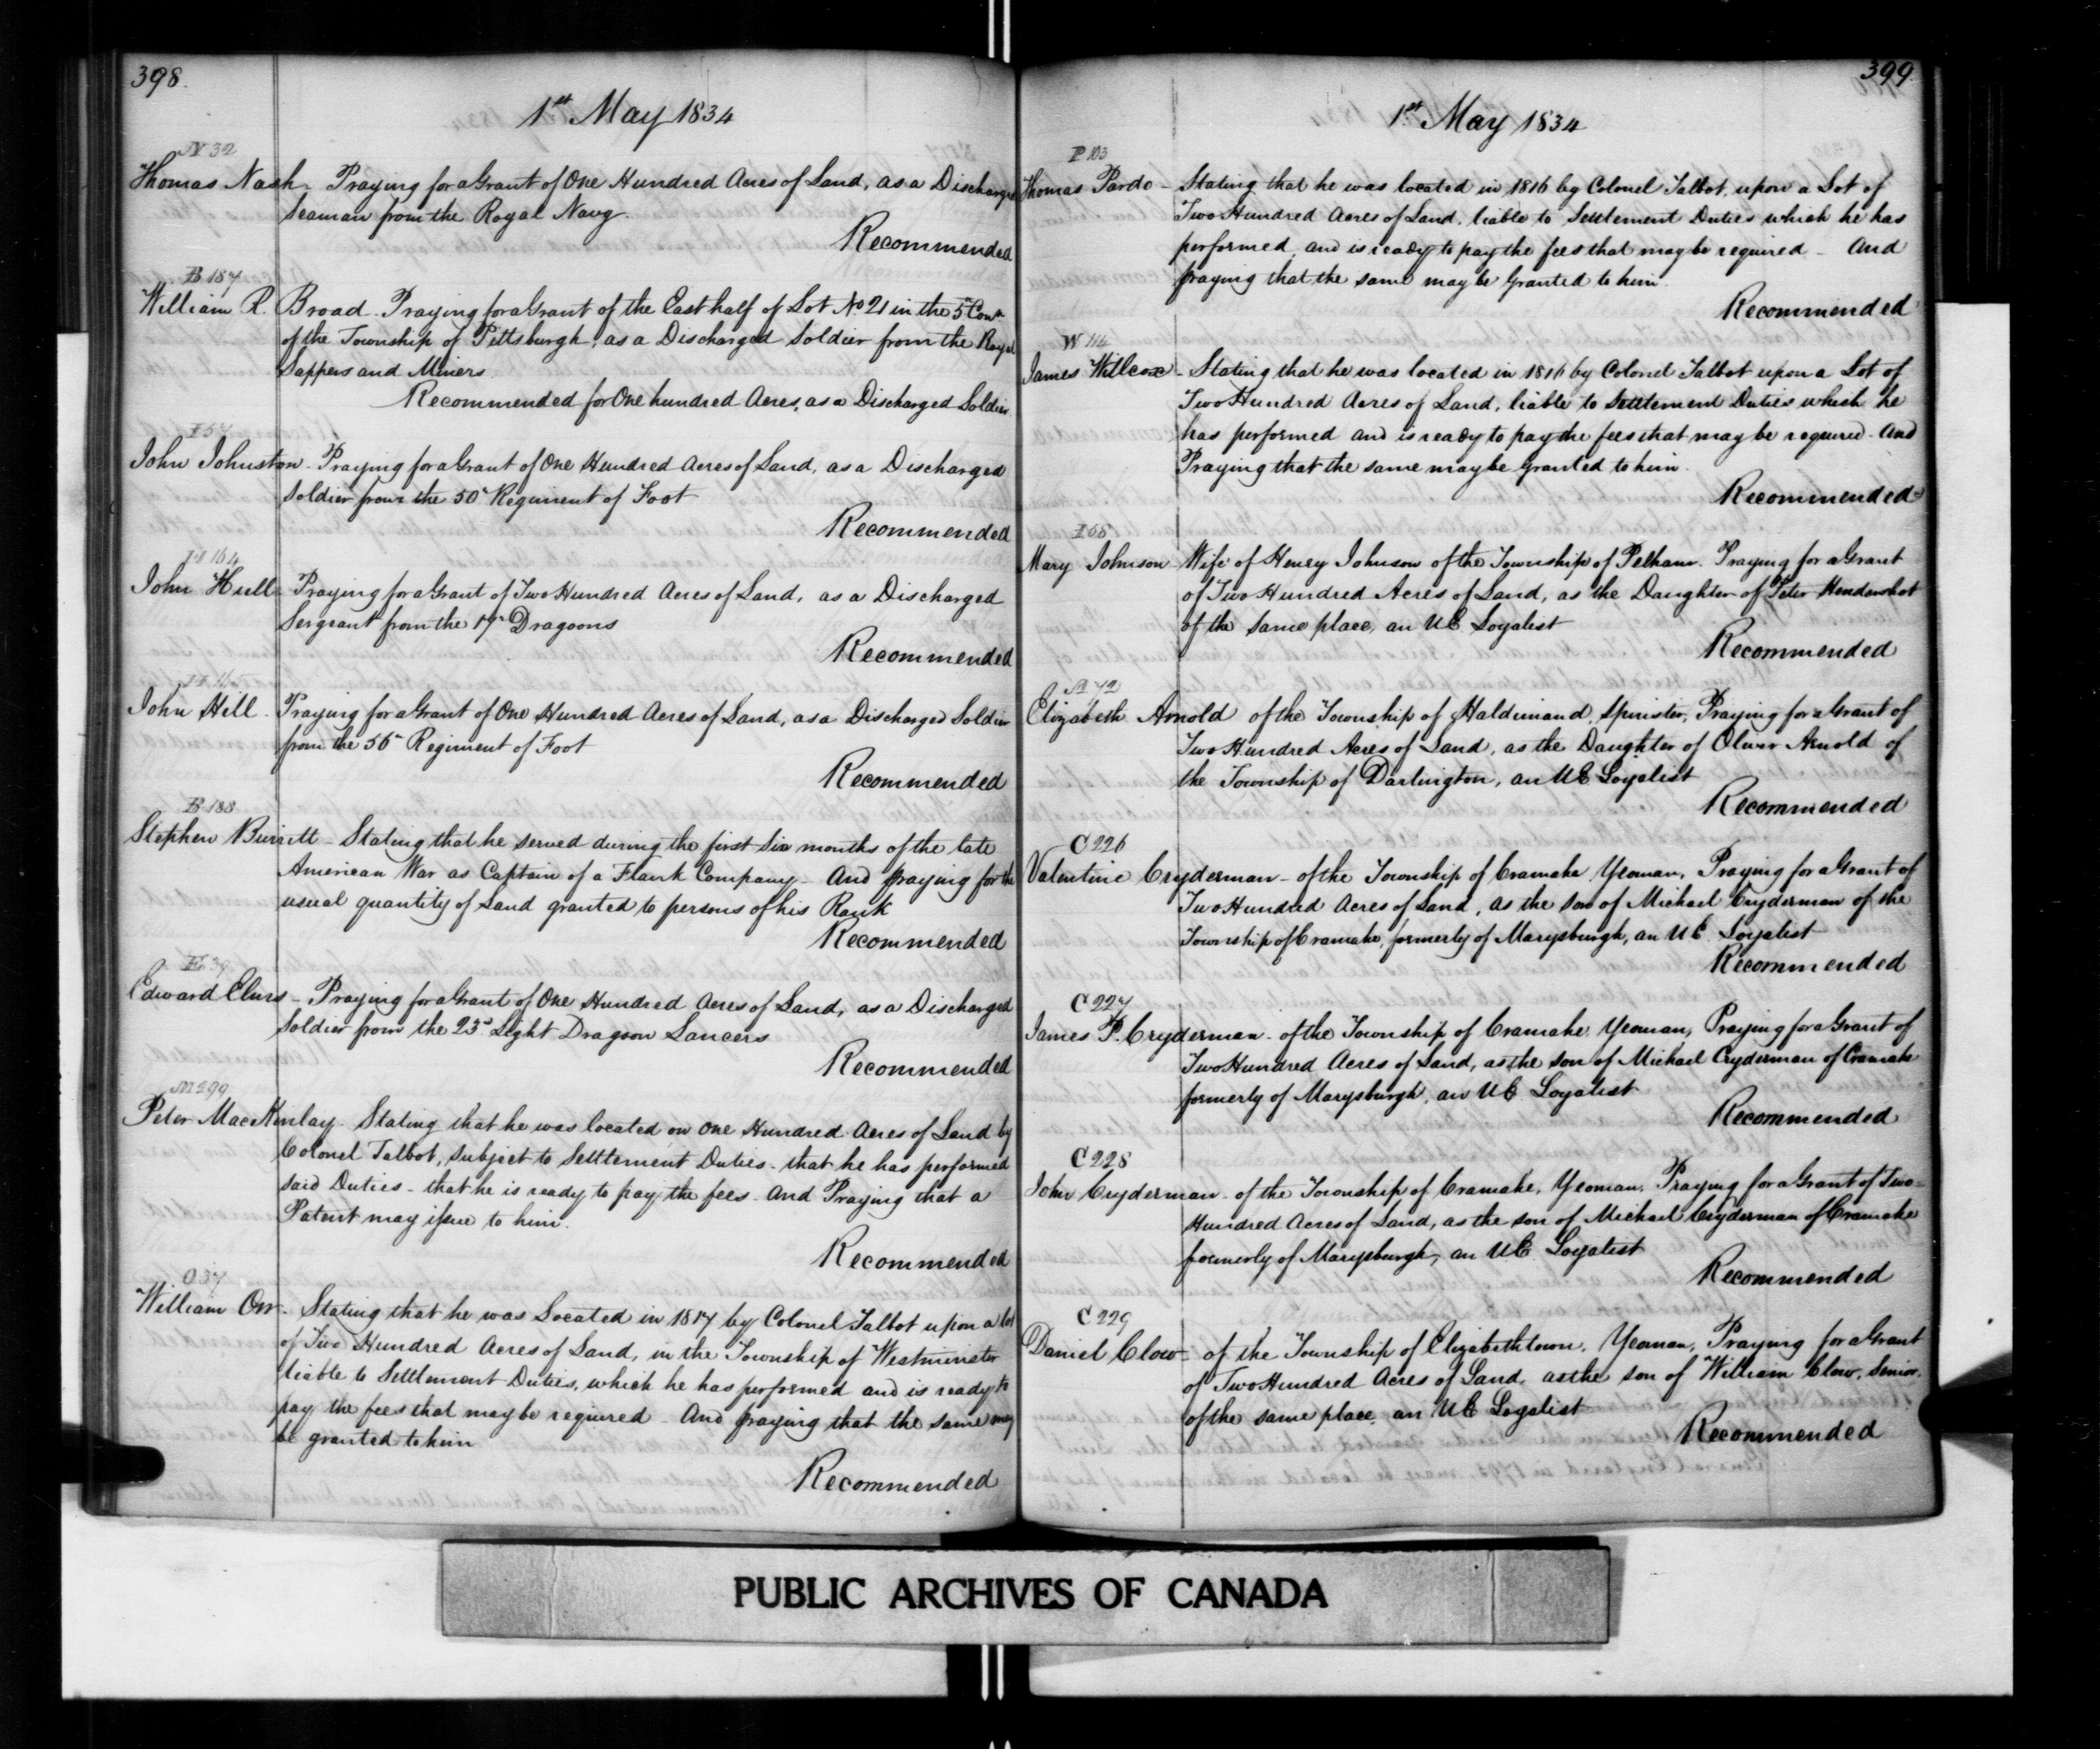 398.
1st May 1834
N 32
Thomas Nash - Praying for a Grant of One Hundred Acres of Land, as a Discharged
Seaman from the Royal Navy
Recommended
B 187
William R. Broad - Praying for a Grant of the East half of Lot No 21 in the 5th Conn
of the Township of Pittsburgh, as a Discharged Soldier from the Royal
Sappers and Miners
Recommended for One hundred Acres, as a Discharged Soldier
I 57
John Johnston - Praying for a Grant of One Hundred Acres of Land, as a Discharged
Soldier from the 50th Regiment of Foot
Recommended
H 164
John Huell - Praying for a Grant of Two Hundred Acres of Land, as a Discharged
Sergeant from the 19th Dragoons
Recommended
H 165
John Hill - Praying for a Grant of One Hundred Acres of Land, as a Discharged Soldier
from the 56th Regiment of Foot
Recommended
B 188
Stephen Burritt - Stating that he served during the first Six months of the late
American War as Captain of a Flank Company - And praying for the
usual quantity of Land granted to persons of his Rank
Recommended
E 39
Edward Elms - Praying for a Grant of One Hundred Acres of Land, as a Discharged
Soldier from the 23d Light Dragoon Lancers
Recommended
M 299
Peter MacKinlay - Stating that he was located on One Hundred Acres of Land by
Colonel Talbot, subject to Settlement Duties - that he has performed
said Duties - that he is ready to pay the fees - And Praying that a
Patent may issue to him.
Recommended
O 37
William Orr - Stating that he was Located in 1817 by Colonel Talbot upon a lot
of Two Hundred Acres of Land, in the Township of Westminster
liable to Settlement Duties, which he has performed and is ready to
pay the fees that may be required - And praying that the same may
be granted to him
Recommended
399.
1st May 1834
P 103
Thomas Pardo - Stating that he was located in 1816 by Colonel Talbot, upon a Lot of
Two Hundred Acres of Land, liable to Settlement Duties which he has
performed, and is ready to pay the fees that may be required - And
praying that the same may be Granted to him.
Recommended
W 114
James Willcox - Stating that he was located in 1816 by Colonel Talbot upon a Lot of
Two Hundred Acres of Land, liable to Settlement Duties which he
has performed and is ready to pay the fees that may be required - And
Praying that the same may be Granted to him.
Recommended
I 68
Mary Johnson - Wife of Henry Johnson of the Township of Pelham - Praying for a Grant
of Two Hundred Acres of Land, as the Daughter of Peter Hendershot
of the same place, an UE Loyalist
Recommended
A 72
Elizabeth Arnold of the Township of Haldimand, Spinster, Praying for a Grant of
Two Hundred Acres of Land, as the Daughter of Oliver Arnold of
the Township of Darlington, an UE Loyalist
Recommended
C 226
Valentine Cryderman - of the Township of Cramahe Yeoman, Praying for a Grant of
Two Hundred Acres of Land, as the son of Michael Cryderman of the
Township of Cramahe, formerly of Marysburgh, an UE Loyalist
Recommended
C 227
James P. Cryderman - of the Township of Cramahe, Yeoman, Praying for a Grant of
Two Hundred Acres of Land, as the son of Michael Cryderman of Cramahe
formerly of Marysburgh, an UE Loyalist
Recommended
C 228
John Cryderman - of the Township of Cramahe, Yeoman, Praying for a Grant of Two
Hundred Acres of Land, as the son of Michael Cryderman of Cramahe
formerly of Marysburgh, an UE Loyalist
Recommended
C 229
Daniel Clow - of the Township of Elizabethtown, Yeoman, Praying for a Grant
of Two Hundred Acres of Land, as the son of William Clow, Senior,
of the same place, an UE Loyalist
Recommended
PUBLIC ARCHIVES OF CANADA